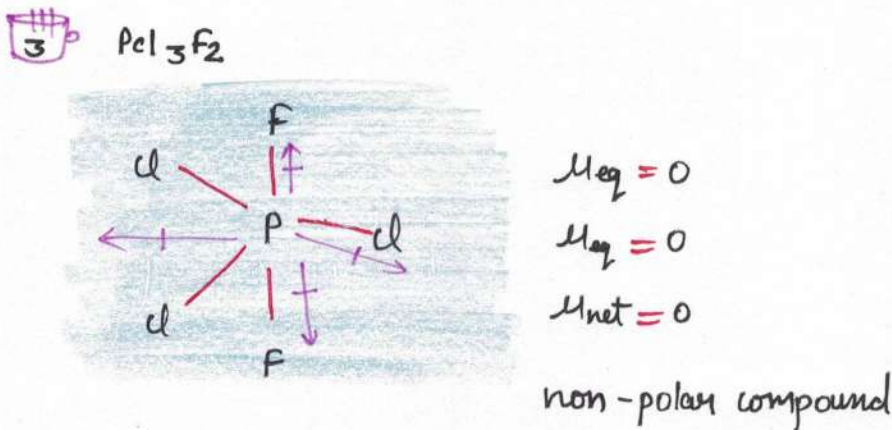 3 PCl3F2
F
Cl
P
Cl
Cl
F
μeq = 0
μeq = 0
μnet = 0
non-polar compound